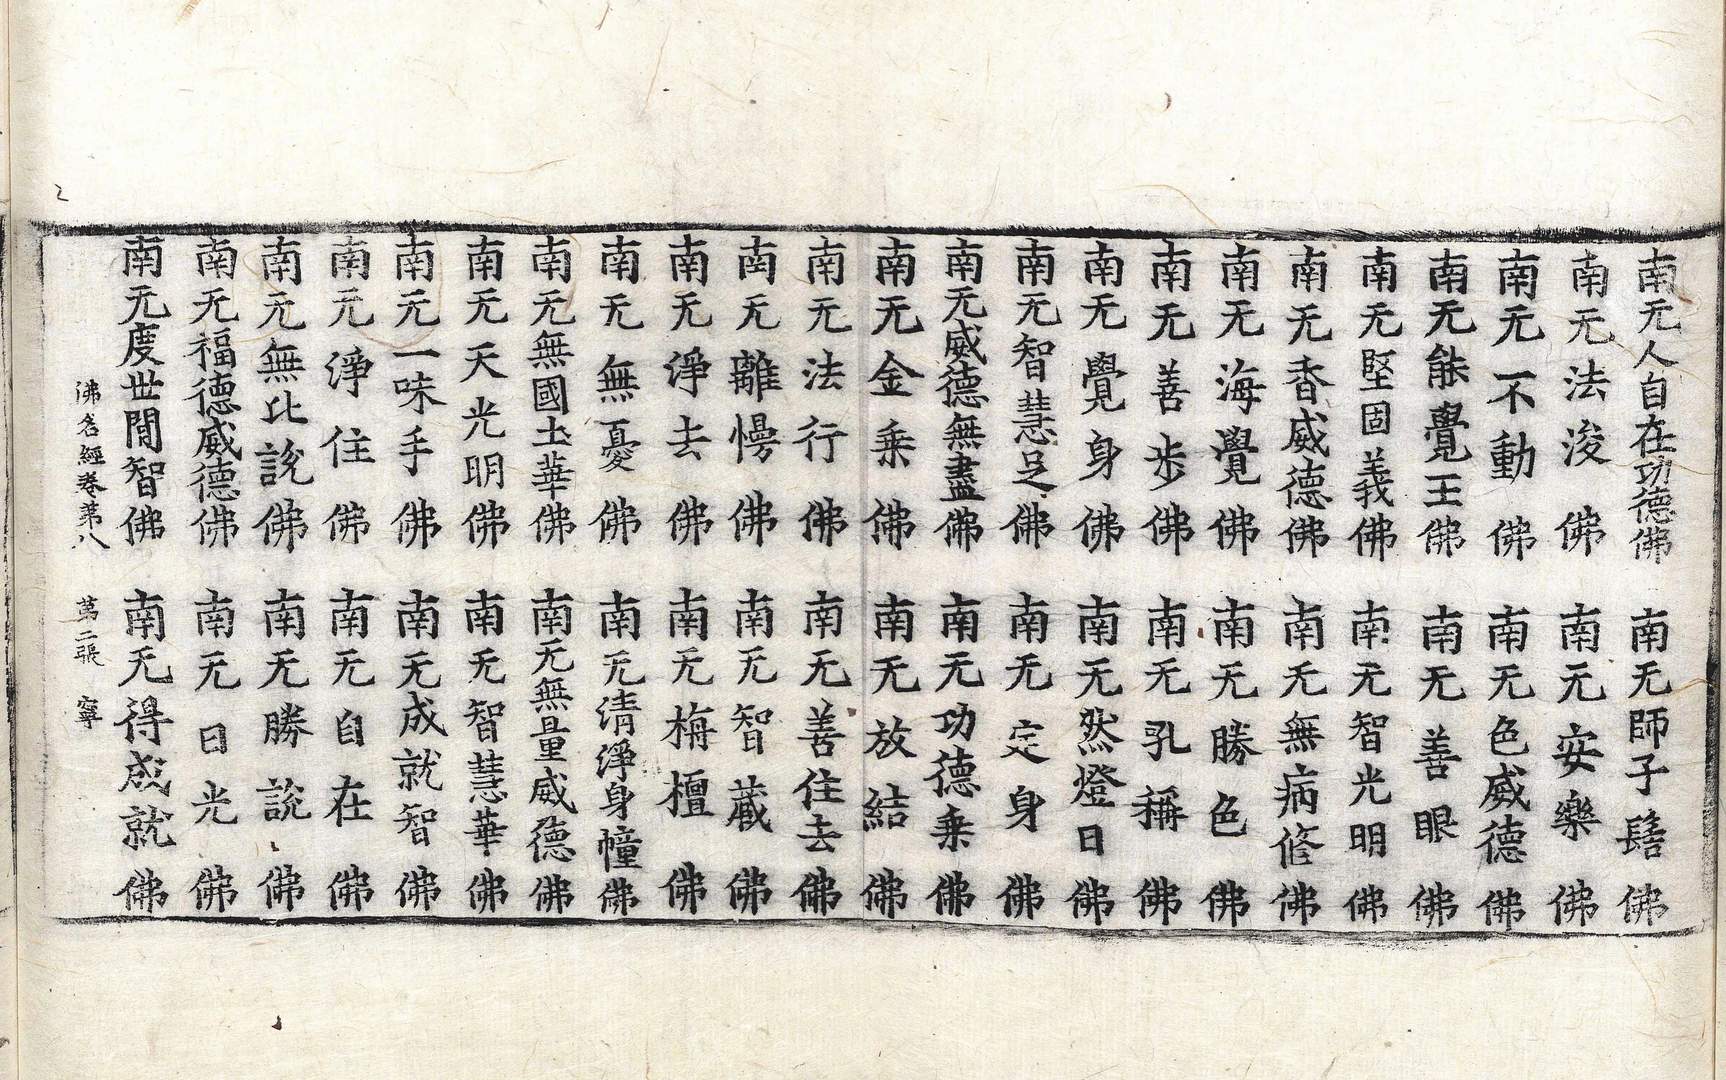 南无人自在功德佛　南无師子髻佛
南无法浚佛　南无安樂佛
南无不動佛　南无色威德佛
南无能覺王佛　南无善眼佛
南无堅固義佛　南无智光明佛
南无香威德佛　南无無病修佛
南无海覺佛　南无勝色佛
南无善步佛　南无孔稱佛
南无覺身佛　南无然燈日佛
南无智慧足佛　南无定身佛
南无威德無盡佛　南无功德乗佛
南无金乗佛　南无放結佛
南无法行佛　南无善住去佛
南无離慢佛　南无智蔵佛
南无淨去佛　南无栴檀佛
南无無憂佛　南无清淨身幢佛
南无無國土華佛　南无無量威德佛
南无天光明佛　南无智慧華佛
南无一味手佛　南无成就智佛
南无淨住佛　南无自在佛
南无無比說佛　南无勝說佛
南无福德威德佛　南无日光佛
南无度世間智佛　南无得成就佛
佛名經卷第八　第二張　寧